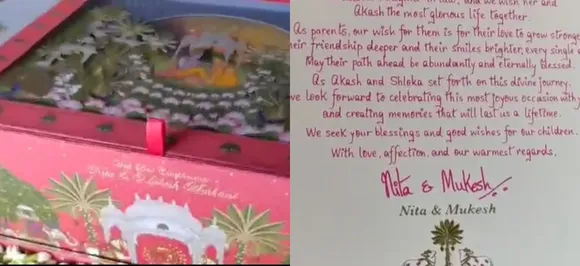 Akash the most glorious life together.
As parents, our wish for them is for their love to grow stronger
their friendship deeper and their smiles brighter, every single
May their path ahead be abundantly and eternally blessed.
As Akash and Shloka set forth on this divine journey,
we look forward to celebrating this most joyous occasion with
and creating memories that will last us a lifetime.
We seek your blessings and good wishes for our children.
With love, affection, and our warmest regards,
Nita & Mukesh
Nita & Mukesh